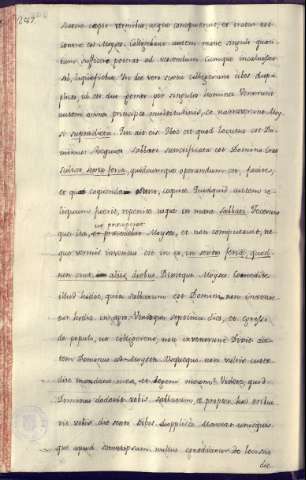 249
scatere coepit vermibus, atque computruit, et iratus est
contra eos Moyses. Colligebant autem mane singuli quan-
tum sufficere poterat ad vescendum: cumque incaluisset
sol, liquefiebat. In die vero sexta collegerunt cibos dupli-
ces, id est duo gomor per singulos homines. Venerunt
autem omnes principes multitudinis, et narraverunt Moy-
si supradicta. Qui ait eis: Hoc est quod locutus est Do-
minus: Requies sabbati sanctificata est Domino cras
quodcumque operandum est, facite,
et quae coquenda sunt, coquite. Quidquid autem re-
liquum fuerit, reponite usque in mane Fecerunt
que ita, ut praeceperat Moyses, et non computruit, ne-
que vermis inventus est in eo,
Dixitque Moyses: Comedite
illud hodie, quia sabbatum est Domini, non invenie-
tur hodie in agro.
de populo, ut colligerent, non invenerunt. Dixit au-
tem Dominus ad Moysen: Usquequo non vultis custo-
dire mandata mea, et legem meam? Videte, quod
Dominus dederit vobis sabbatum, et propter hoc tribue-
rit vobis die sexta cibos duplices. Maneat unusquis-
que apud semetipsum, nullus egrediatur de loco suo
die